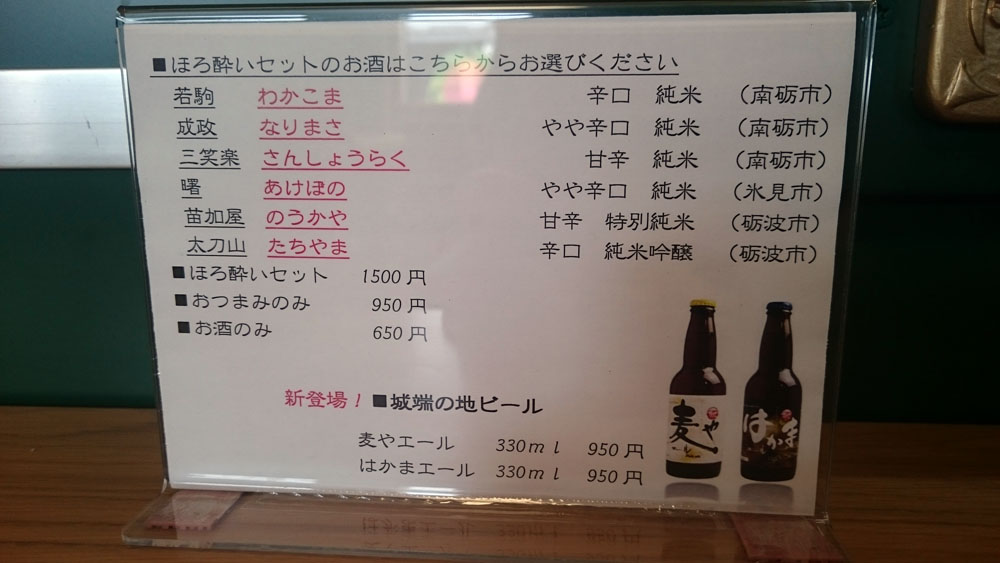 ■ほろ酔いセットのお酒はこちらからお選びください
若駒 わかこま 辛口 純米 (南砺市)
成政 なりまさ やや辛口 純米 (南砺市)
三笑楽 さんしょうらく 甘辛 純米 (南砺市)
曙 あけぼの やや辛口 純米 (氷見市)
苗加屋 のうかや 甘辛 特別純米 (砺波市)
太刀山 たちやま 辛口 純米吟醸 (砺波市)
■ほろ酔いセット 1500円
■おつまみのみ 950円
■お酒のみ 650円
新登場! ■城端の地ビール
麦やエール 330ml 950円
はかまエール 330ml 950円
麦や
はかま